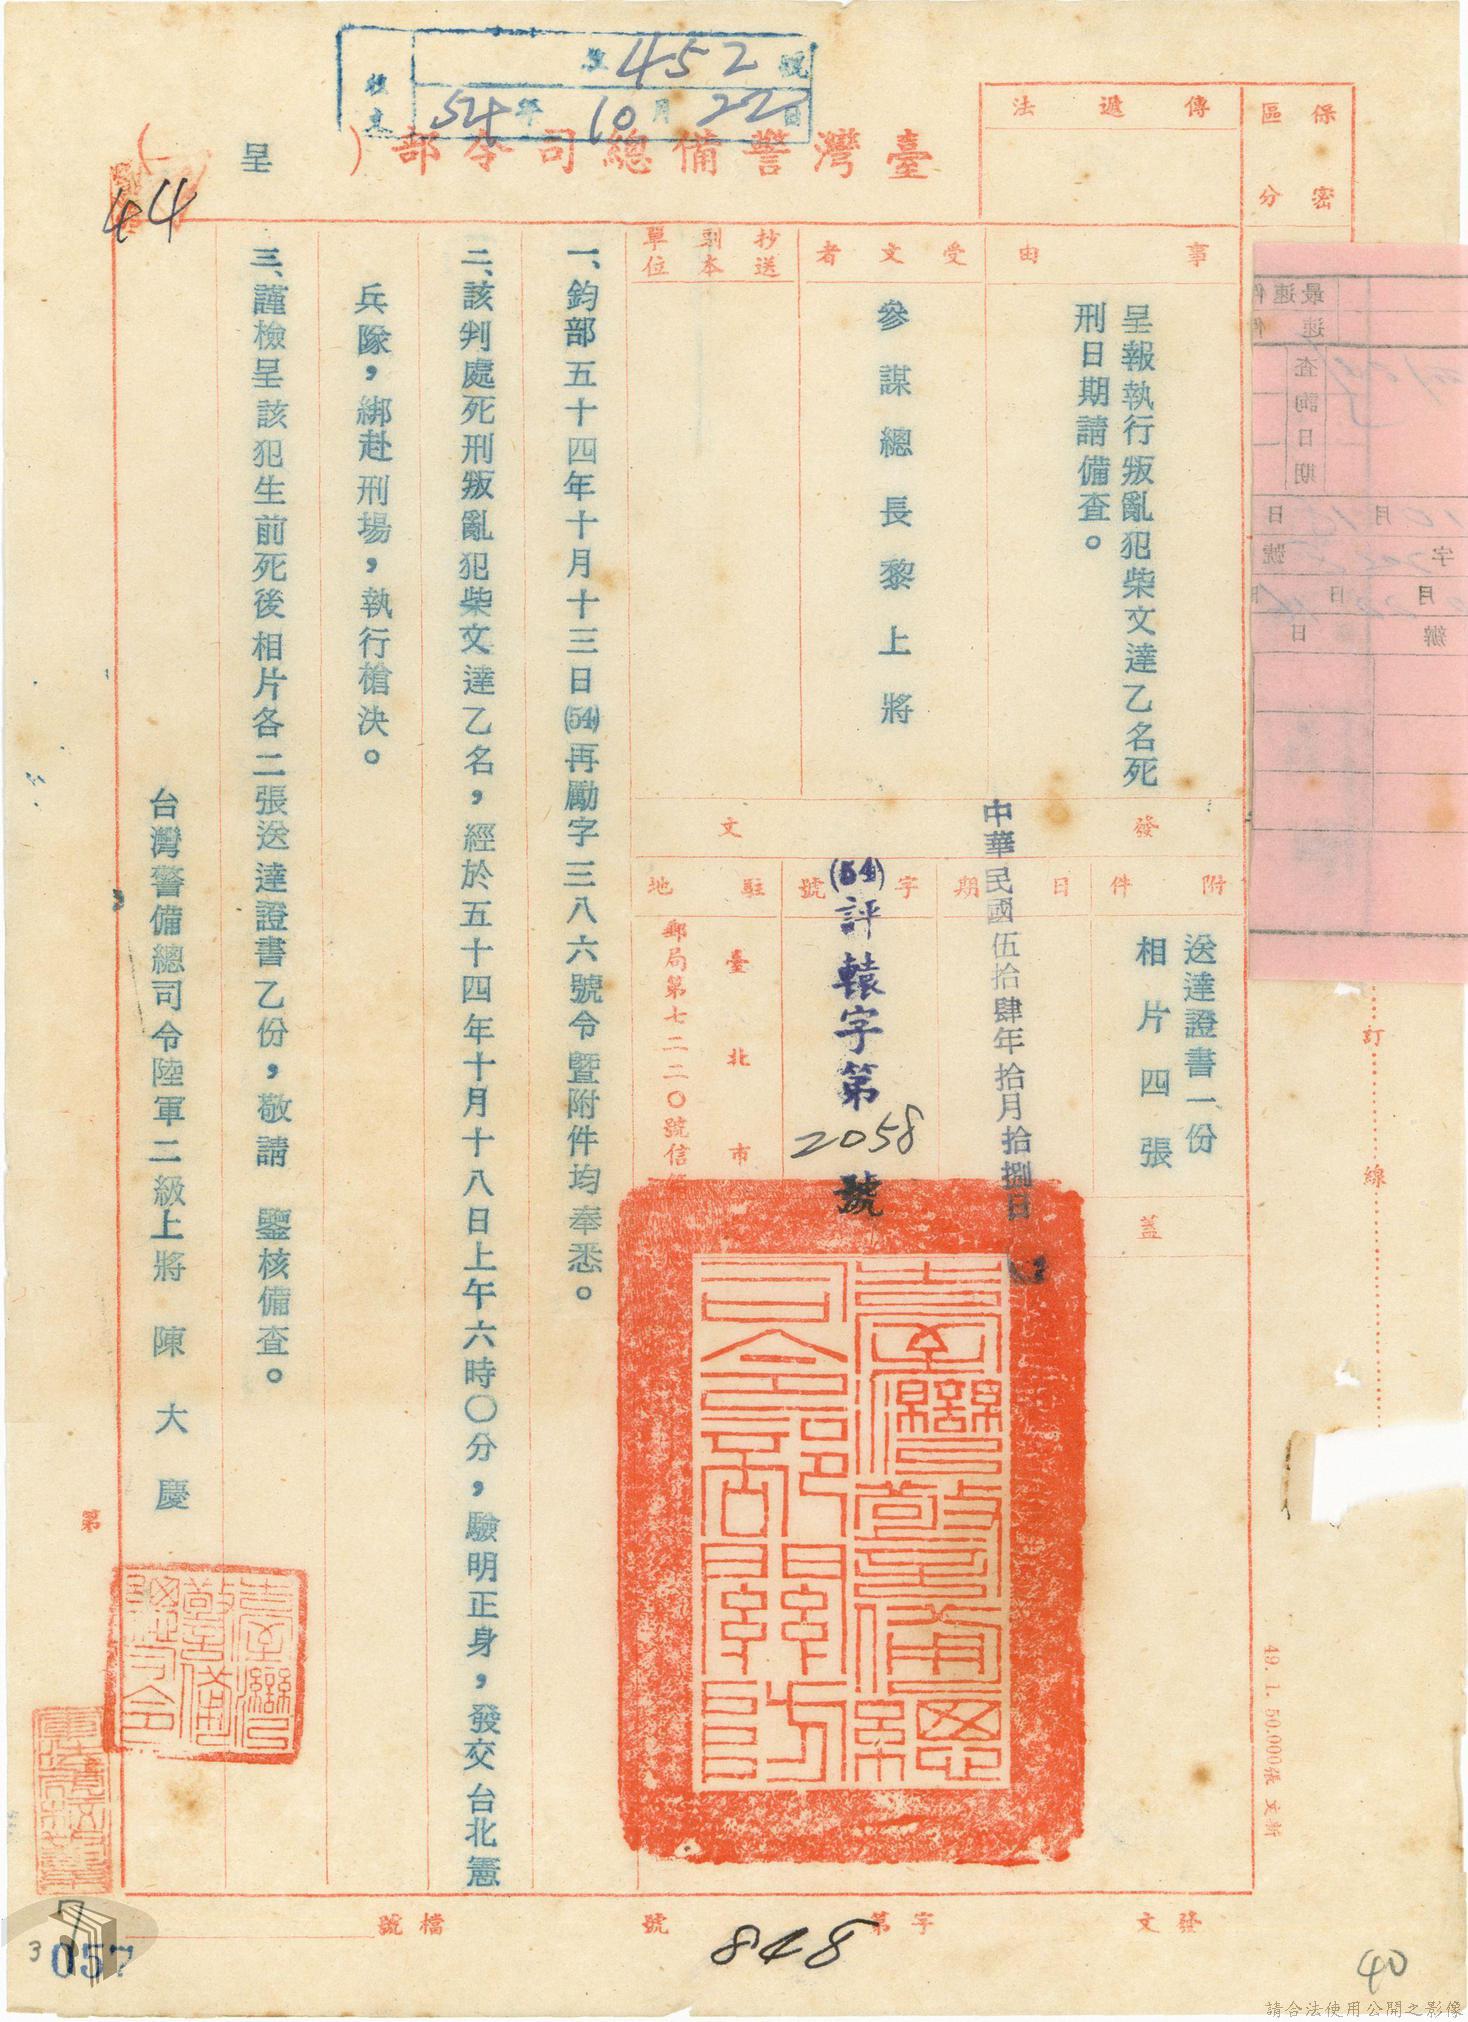 收文
452 號
54年10月22日
臺灣警備總司令部(呈)
保密區分
傳遞法
事由
呈報執行叛亂犯柴文達乙名死
刑日期請備查。
受文者
參謀總長黎上將
抄送副本單位
發文
附件
送達證書一份
相片四張
日期
中華民國伍拾肆年拾月拾捌日
字號
(54)評轅字第2058號
駐地
臺北市
郵局第七二二〇號信箱
蓋
臺灣警備總
司令部關防
一、鈞部五十四年十月十三日(54)再勵字三八六號令暨附件均奉悉。
二、該判處死刑叛亂犯柴文達乙名,經於五十四年十月十八日上午六時〇分,驗明正身,發交台北憲
兵隊,綁赴刑場,執行槍決。
三、謹檢呈該犯生前死後相片各二張送達證書乙份,敬請 鑒核備查。
台灣警備總司令陸軍二級上將 陳大慶
臺灣
警備
總司令
44
第
訂線
49. 1. 50.000張 文新
最速件
速件
查詢日期
月 日
字 號
月 日
辦 日
發文字第848號
檔號
7
3
057
40
請合法使用公開之影像